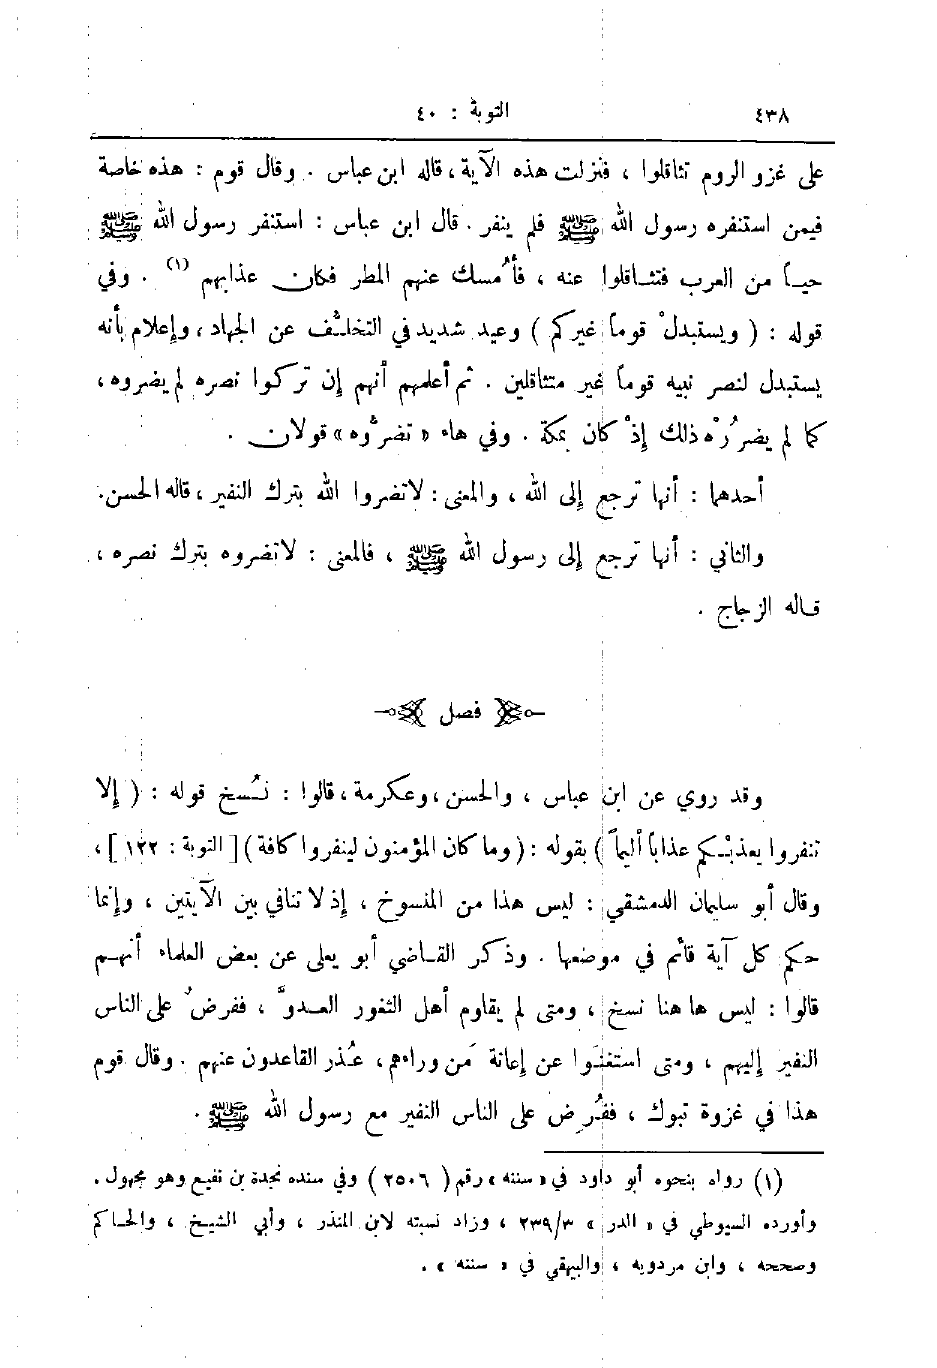 ٤٣٨ التوبة : ٤٠
على غزو الروم تثاقلوا ، فنزلت هذه الآية ، قاله ابن عباس . وقال قوم : هذه خاصة
فيمن استنفره رسول الله ﷺ فلم ينفر . قال ابن عباس : استنفر رسول الله ﷺ
حيـاً من العرب فتثـاقلوا عنه ، فأُمسك عنهم المطر فكان عذابهم (١) . وفي
قوله : ( ويستبدلْ قوماً غيركم ) وعيد شديد في التخلُّف عن الجهاد ، وإعلام بأنه
يستبدل لنصر نبيه قوماً غير متثاقلين . ثم أعلمهم أنهم إن تركوا نصره لم يضروه ،
كما لم يضرُرْه ذلك إذْ كان بمكة . وفي هاء « تضرُّوه » قولان .
أحدهما : أنها ترجع إلى الله ، والمعنى : لا تضروا الله بترك النفير ، قاله الحسن .
والثاني : أنها ترجع إلى رسول الله ﷺ ، فالمعنى : لا تضروه بترك نصره ،
قـاله الزجاج .
فصل
وقد روي عن ابن عباس ، والحسن ، وعكرمة ، قالوا : نُسخ قوله : ( إلا
تنفروا يعذبْكم عذاباً أليماً ) بقوله : ( وما كان المؤمنون لينفروا كافة ) [ التوبة : ١٢٢ ] ،
وقال أبو سليمان الدمشقي : ليس هذا من المنسوخ ، إذ لا تنافي بين الآيتين ، وإنما
حكم كل آية قائم في موضعها . وذكر القـاضي أبو يعلى عن بعض العلماء أنهـم
قالوا : ليس ها هنا نسخ ، ومتى لم يقاوم أهل الثغور العـدوَّ ، ففرضٌ على الناس
النفير إليهم ، ومتى استغنَوا عن إعانة مَن وراءهم ، عُذر القاعدون عنهم . وقال قوم
هذا في غزوة تبوك ، ففُرِض على الناس النفير مع رسول الله ﷺ .
(١) رواه بنحوه أبو داود في « سننه » رقم ( ٢٥٠٦ ) وفي سنده نجدة بن نفيع وهو مجهول .
وأورده السيوطي في « الدر » ٢٣٩/٣ ، وزاد نسبته لابن المنذر ، وأبي الشيخ ، والحـاكم
وصححه ، وابن مردويه ، والبيهقي في « سننه » .